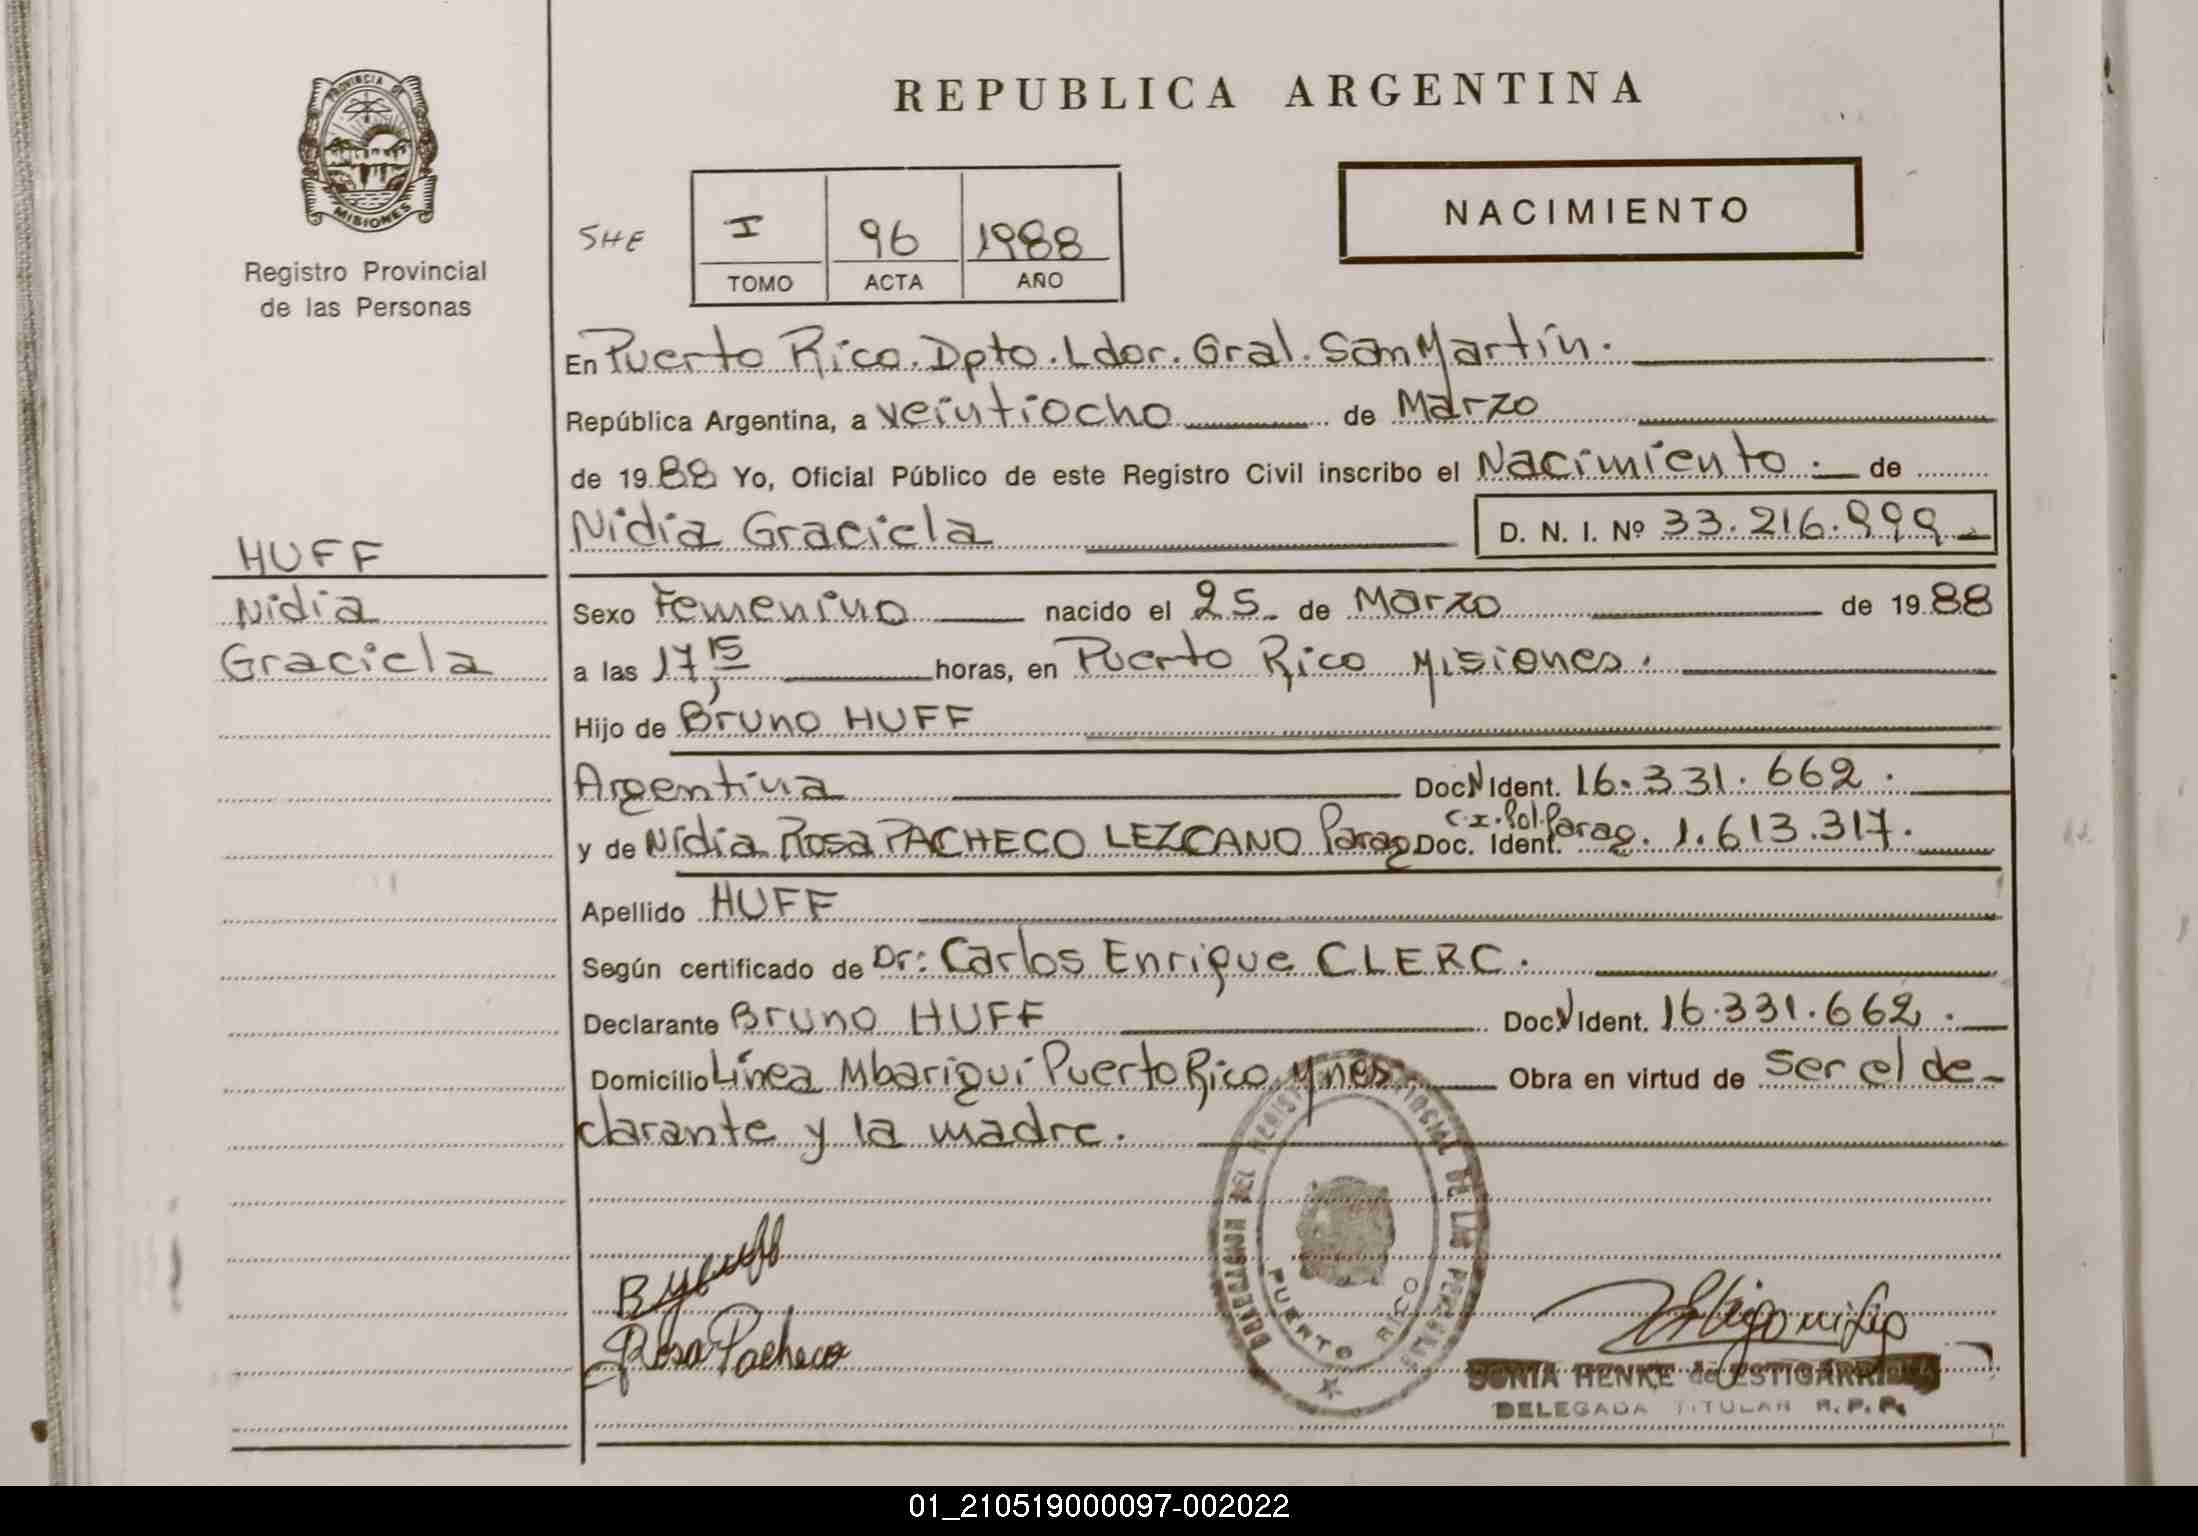 REPUBLICA ARGENTINA
PROVINCIA DE
MISIONES
Registro Provincial
de las Personas
NACIMIENTO
SHE
I 96 1988
TOMO ACTA AÑO
En Puerto Rico. Dpto. Ldor. Gral. San Martín.
República Argentina, a veintiocho de Marzo
de 1988 Yo, Oficial Público de este Registro Civil inscribo el Nacimiento. de
Nidia Graciela D. N. I. Nº 33.216.999
HUFF
Nidia
Graciela
Sexo Femenino nacido el 25 de Marzo de 1988
a las 17,15 horas, en Puerto Rico Misiones.
Hijo de Bruno HUFF
Argentina Doc N Ident. 16.331.662.
y de Nidia Rosa PACHECO LEZCANO Parag Doc. Ident. c.x.Pol.Parag. 1.613.317.
Apellido HUFF
Según certificado de Dr: Carlos Enrique CLERC.
Declarante Bruno HUFF Doc N Ident. 16.331.662.
Domicilio Línea Mbarigui Puerto Rico Mnes. Obra en virtud de ser el de-
clarante y la madre.
DELEGACION DEL REGISTRO PROVINCIAL DE LAS PERSONAS
PUERTO RICO
Rosa Pacheco
SONIA HENKE de ESTIGARRIBIA
DELEGADA TITULAR R. P. P.
01_210519000097-002022